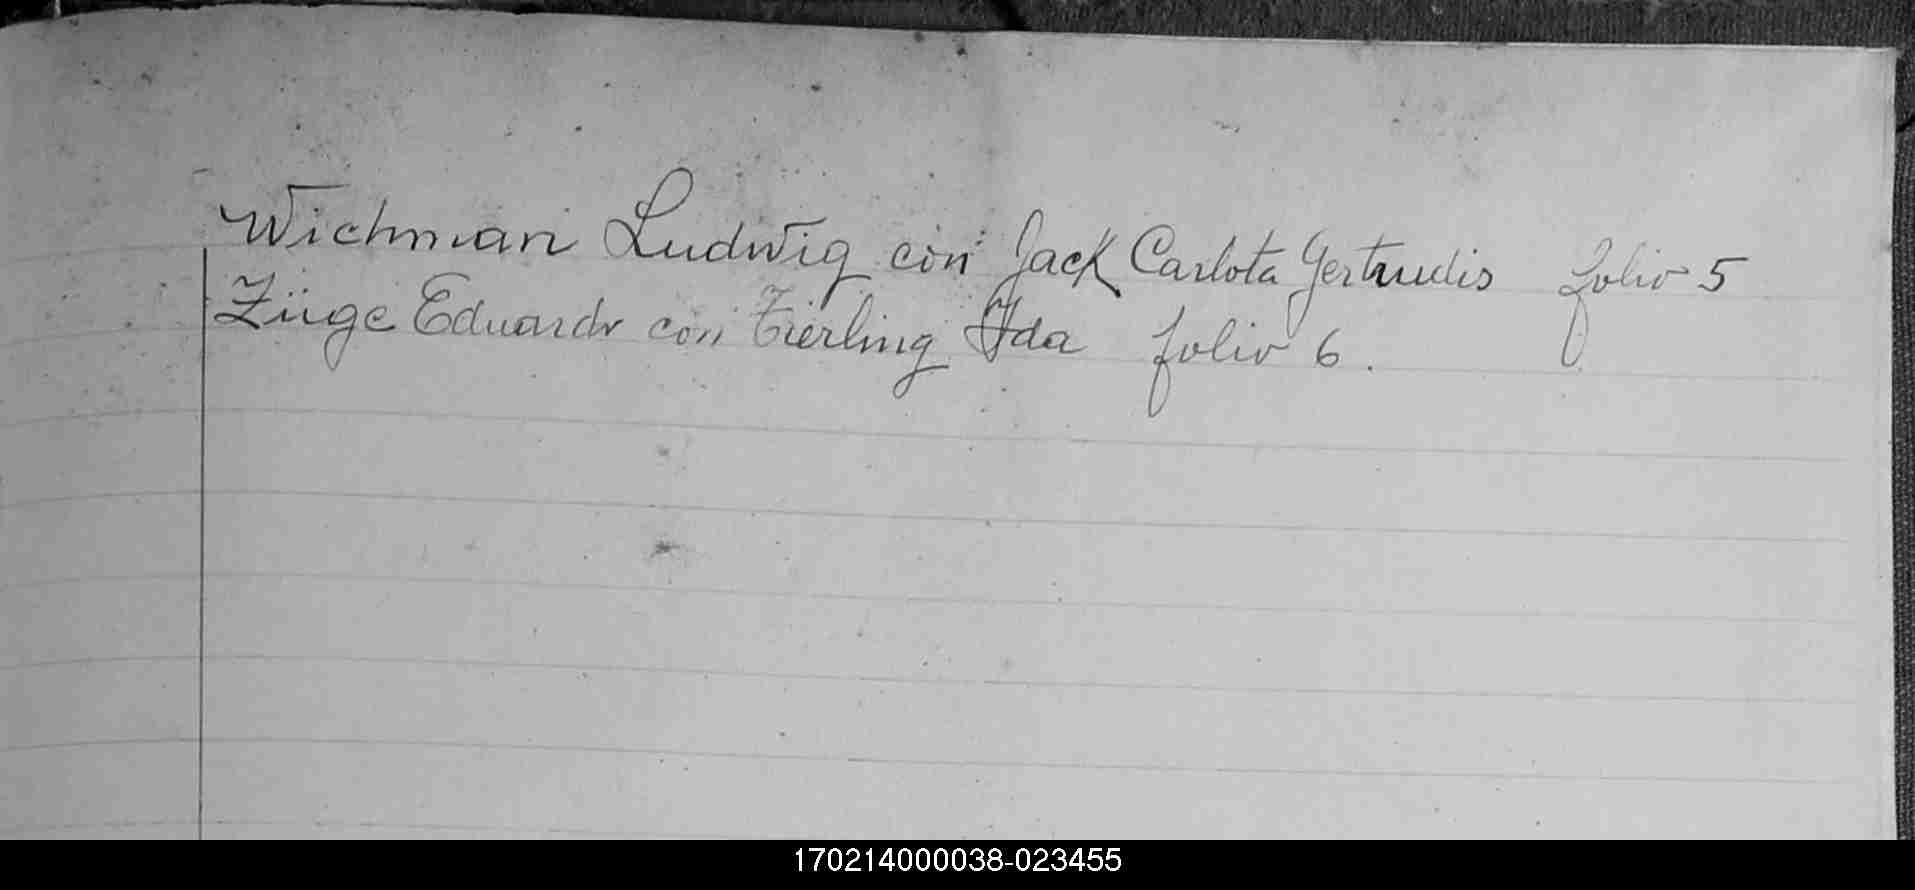 Wichman Ludwig con Jack Carlota Gertrudis folio 5
Züge Eduardo con Tierling Ida folio 6.
170214000038-023455